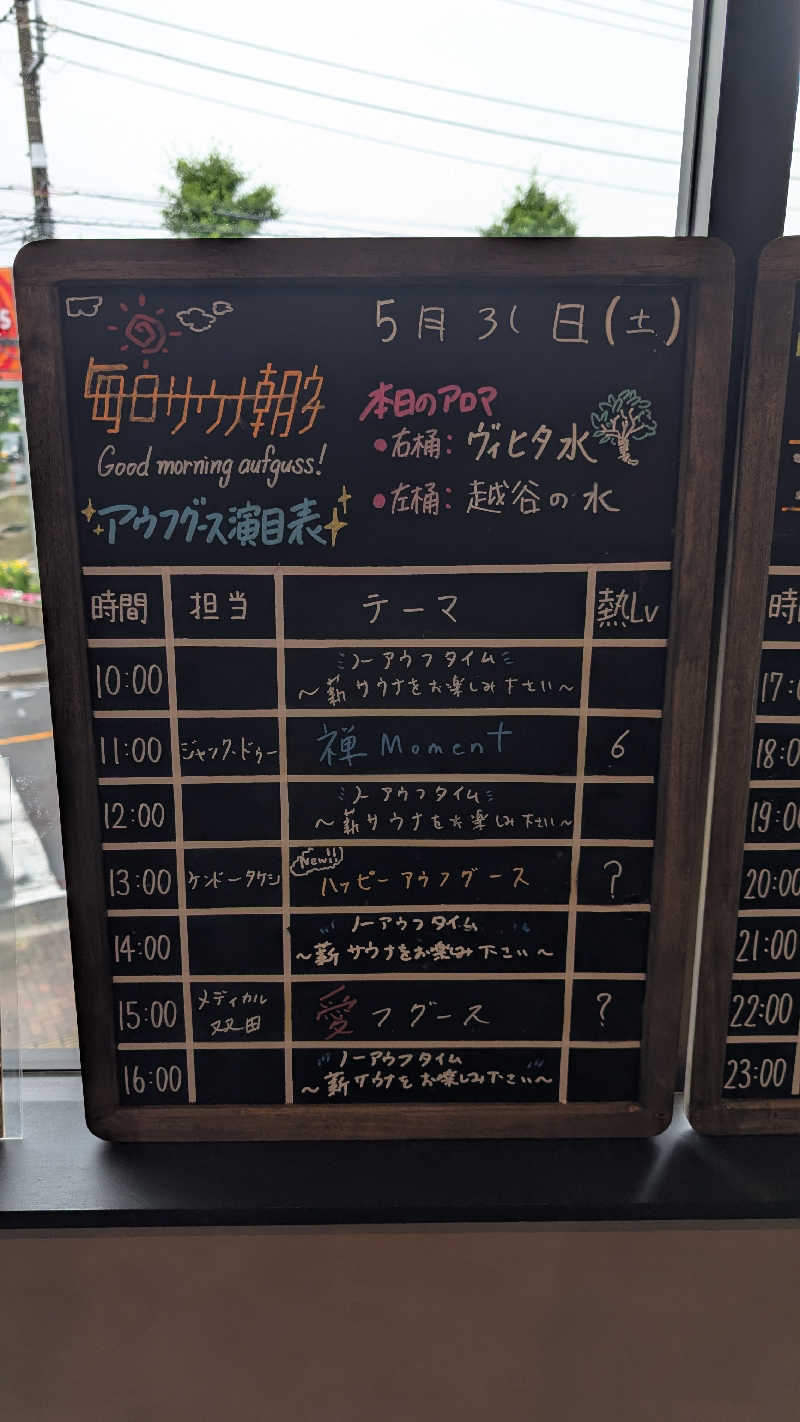 5月31日(土)
Good morning aufguss!
アウフグース演目表
本日のアロマ
右桶: ヴィヒタ水
左桶: 越谷の水
時間 担当 テーマ 熱Lv
10:00 ノーアウフタイム
～薪サウナをお楽しみ下さい～
11:00 ジャック・ドゥー 禅Moment 6
12:00 ノーアウフタイム
～薪サウナをお楽しみ下さい～
13:00 ケンドータケシ New!! ハッピーアウフグース ?
14:00 ノーアウフタイム
～薪サウナをお楽しみ下さい～
15:00 メディカル双田 愛フグース ?
16:00 ノーアウフタイム
～薪サウナをお楽しみ下さい～
時
17:
18:0
19:0
20:00
21:00
22:00
23:00